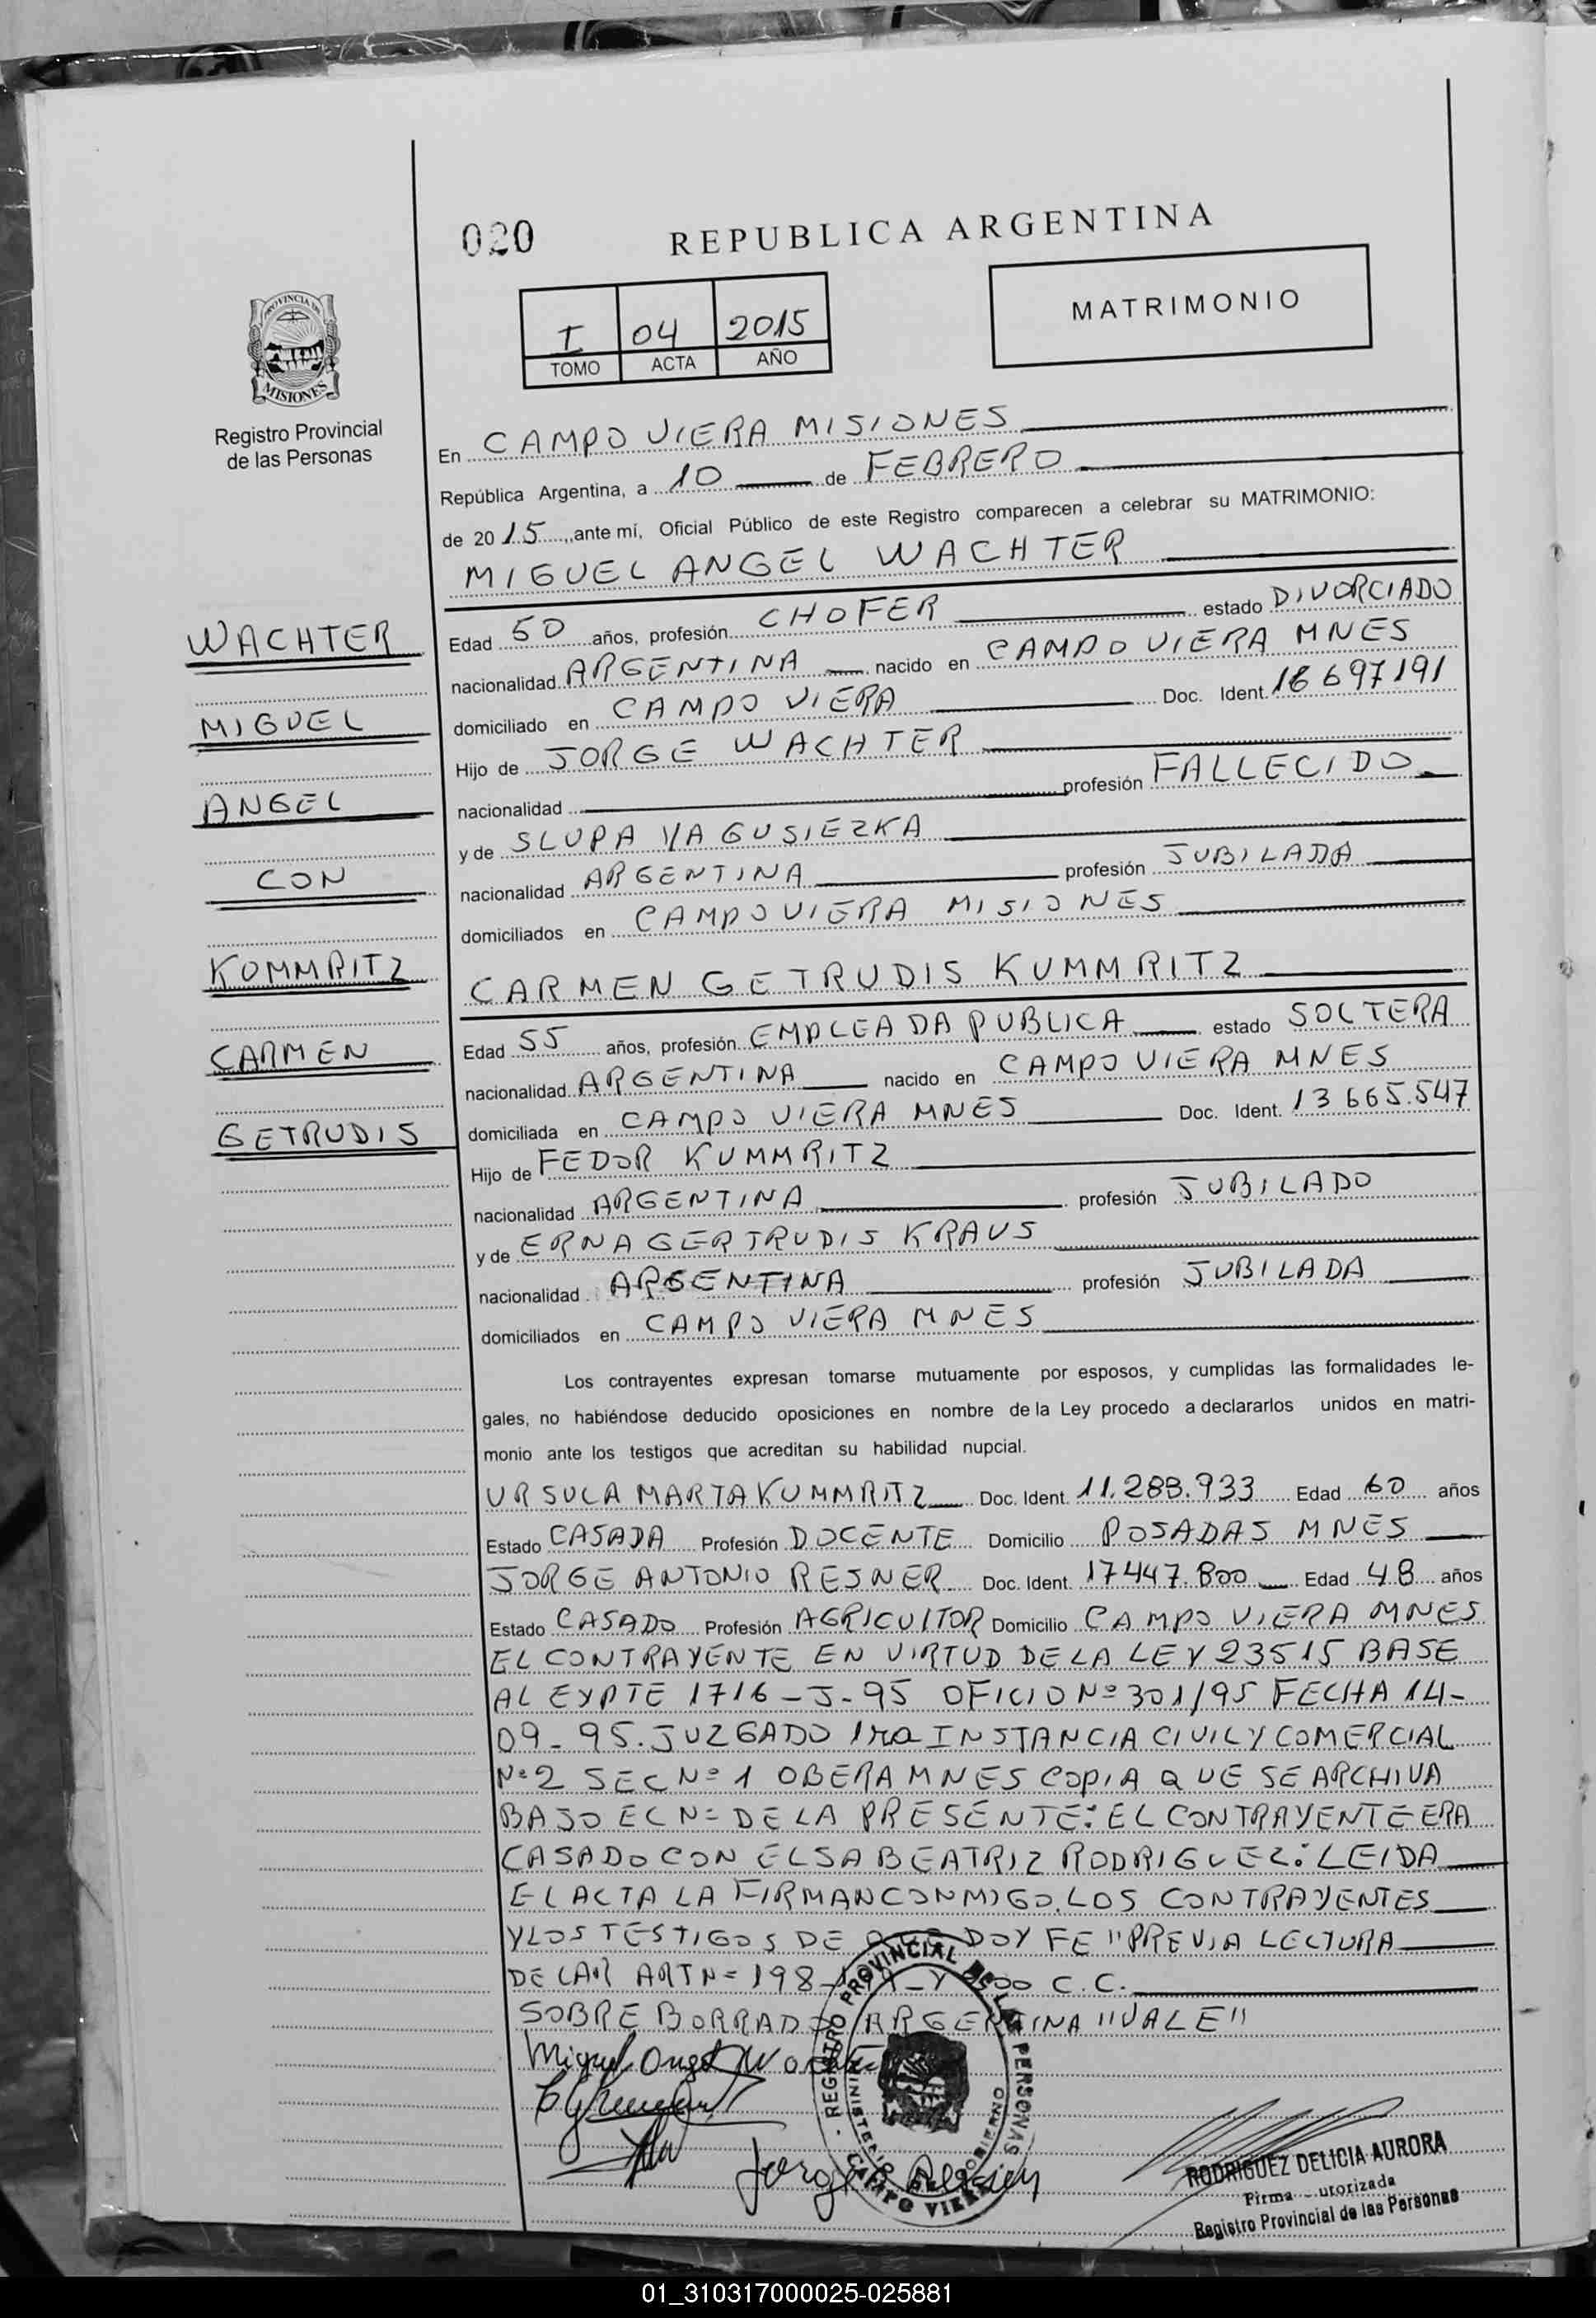 020
REPUBLICA ARGENTINA
PROVINCIA DE
MISIONES
Registro Provincial
de las Personas
I 04 2015
TOMO ACTA AÑO
MATRIMONIO
En CAMPO VIERA MISIONES
República Argentina, a 10 de FEBRERO
de 2015, ante mí, Oficial Público de este Registro comparecen a celebrar su MATRIMONIO:
MIGUEL ANGEL WACHTER
Edad 50 años, profesión CHOFER estado DIVORCIADO
nacionalidad ARGENTINA nacido en CAMPO VIERA MNES
domiciliado en CAMPO VIERA Doc. Ident. 16 697191
Hijo de JORGE WACHTER
nacionalidad profesión FALLECIDO
y de SLUPA YAGUSIEZKA
nacionalidad ARGENTINA profesión JUBILADA
domiciliados en CAMPO VIERA MISIONES
CARMEN GETRUDIS KUMMRITZ
Edad 55 años, profesión EMPLEADA PUBLICA estado SOLTERA
nacionalidad ARGENTINA nacido en CAMPO VIERA MNES
domiciliada en CAMPO VIERA MNES Doc. Ident. 13 665.547
Hijo de FEDOR KUMMRITZ
nacionalidad ARGENTINA profesión JUBILADO
y de ERNA GERTRUDIS KRAUS
nacionalidad ARGENTINA profesión JUBILADA
domiciliados en CAMPO VIERA MNES
WACHTER
MIGUEL
ANGEL
CON
KOMMRITZ
CARMEN
GETRUDIS
Los contrayentes expresan tomarse mutuamente por esposos, y cumplidas las formalidades le-
gales, no habiéndose deducido oposiciones en nombre de la Ley procedo a declararlos unidos en matri-
monio ante los testigos que acreditan su habilidad nupcial.
URSULA MARTA KUMMRITZ Doc. Ident. 11.288.933 Edad 60 años
Estado CASADA Profesión DOCENTE Domicilio POSADAS MNES
JORGE ANTONIO RESNER Doc. Ident. 17447.800 Edad 48 años
Estado CASADO Profesión AGRICULTOR Domicilio CAMPO VIERA MNES
EL CONTRAYENTE EN VIRTUD DE LA LEY 23515 BASE
AL EXPTE 1716-J-95 OFICIO Nº 301/95 FECHA 14-
09-95. JUZGADO 1ra INSTANCIA CIVIL Y COMERCIAL
Nº 2 SEC Nº 1 OBERA MNES COPIA QUE SE ARCHIVA
BAJO EL Nº DE LA PRESENTE: EL CONTRAYENTE ERA
CASADO CON ELSA BEATRIZ RODRIGUEZ: LEIDA
EL ACTA LA FIRMAN CONMIGO. LOS CONTRAYENTES
Y LOS TESTIGOS DE QUE DOY FE "PREVIA LECTURA
DE LAR ART Nº 198- Y C.C.
SOBRE BORRADO ARGENTINA "VALE"
Miguel Angel Wachter
Jorge
REGISTRO PROVINCIAL DE LAS PERSONAS
MINISTERIO DE GOBIERNO
CAMPO VIERA
RODRIGUEZ DELICIA AURORA
Firma utorizada
Registro Provincial de las Personas
01_310317000025-025881